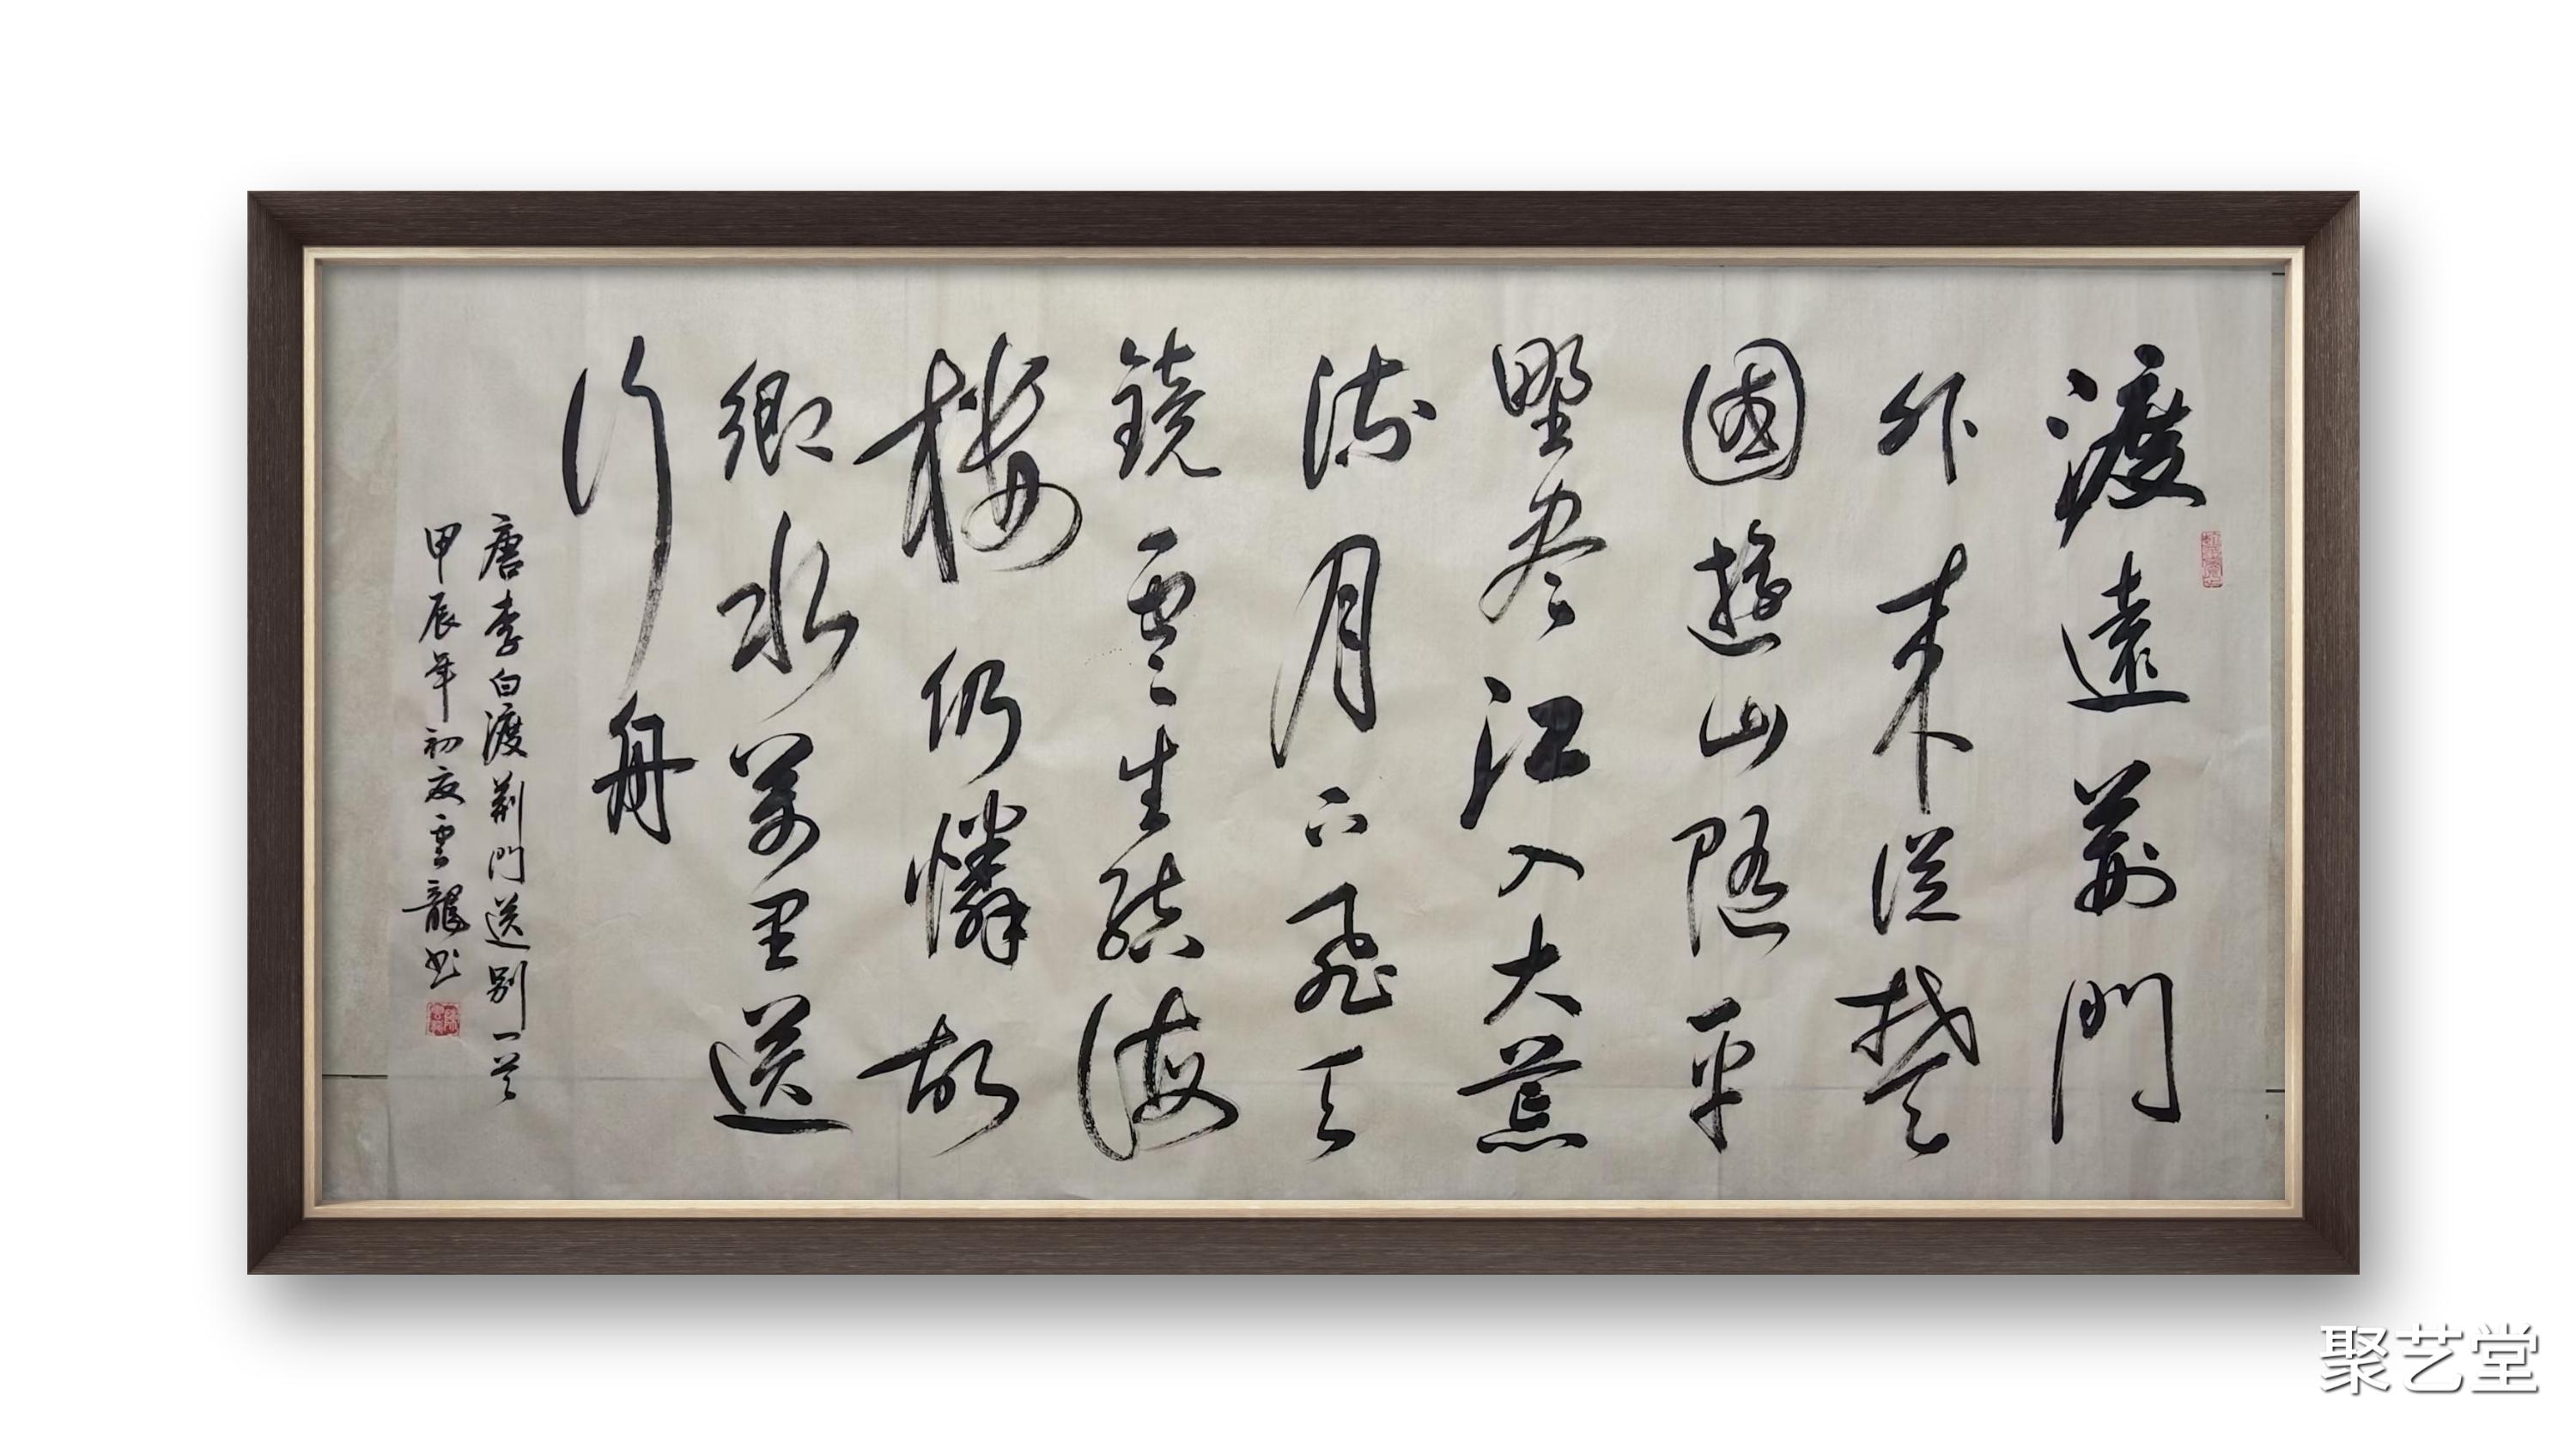 渡遠荆門
外来從楚
國遊山隨平
野尽江入大荒
流月下飛天
鏡雲生結海
樓仍憐故
鄉水萬里送
行舟
唐李白渡荆門送別一首
甲辰年初夏雲龍书
聚艺堂